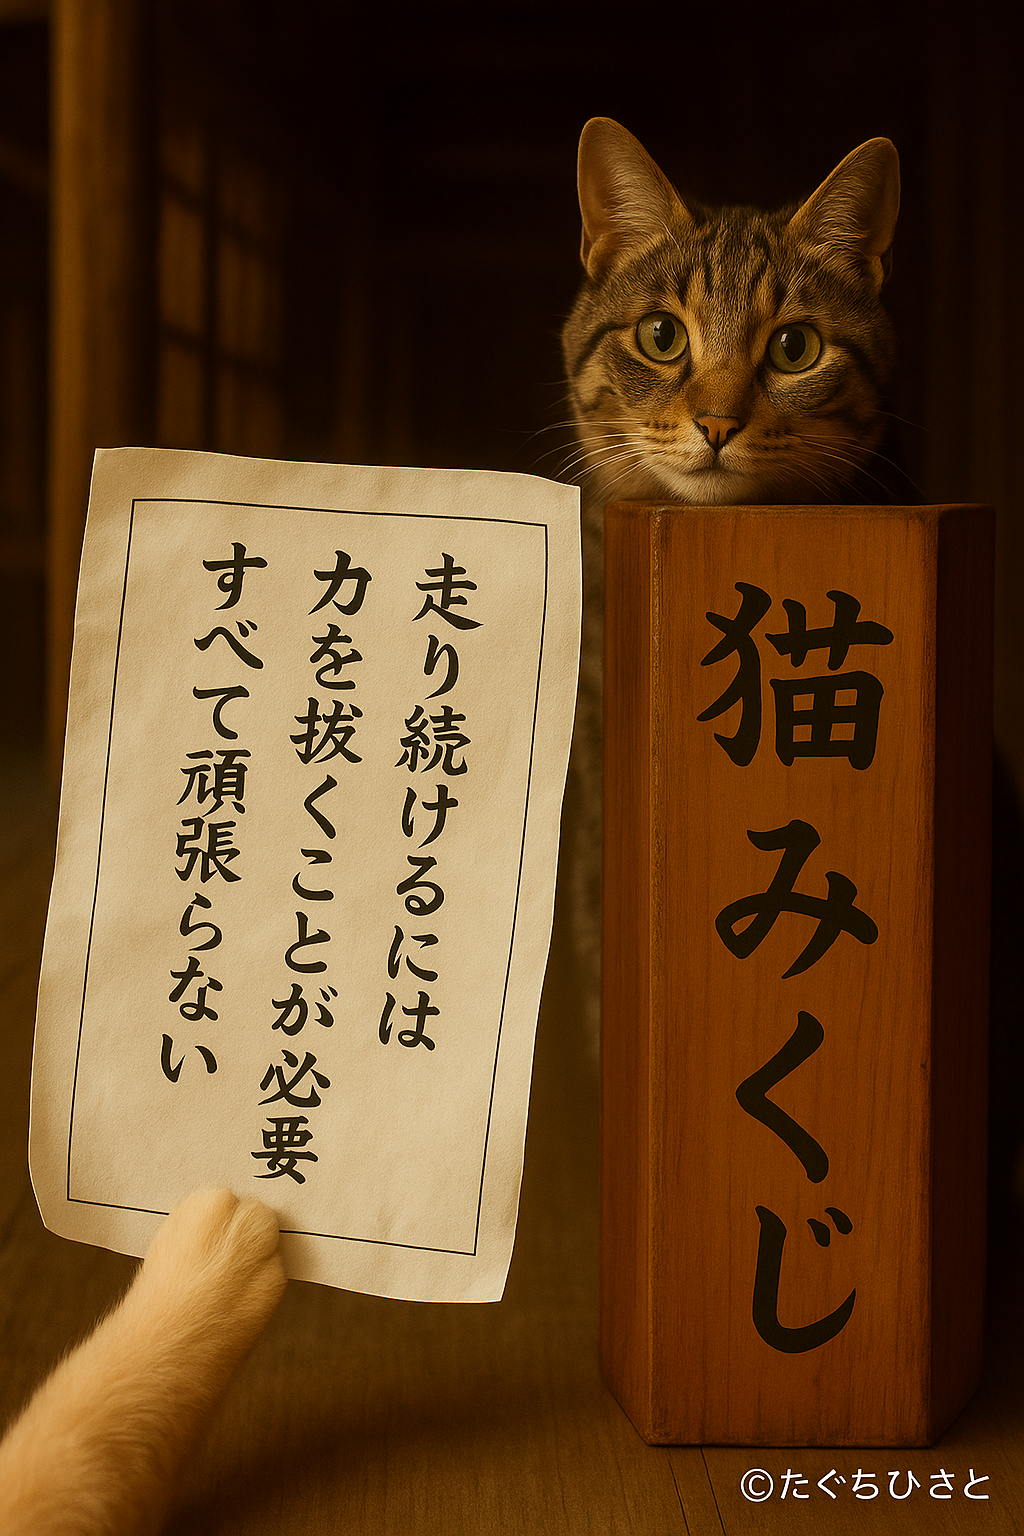 走り続けるには
力を抜くことが必要
すべて頑張らない
猫みくじ
©たぐちひさと